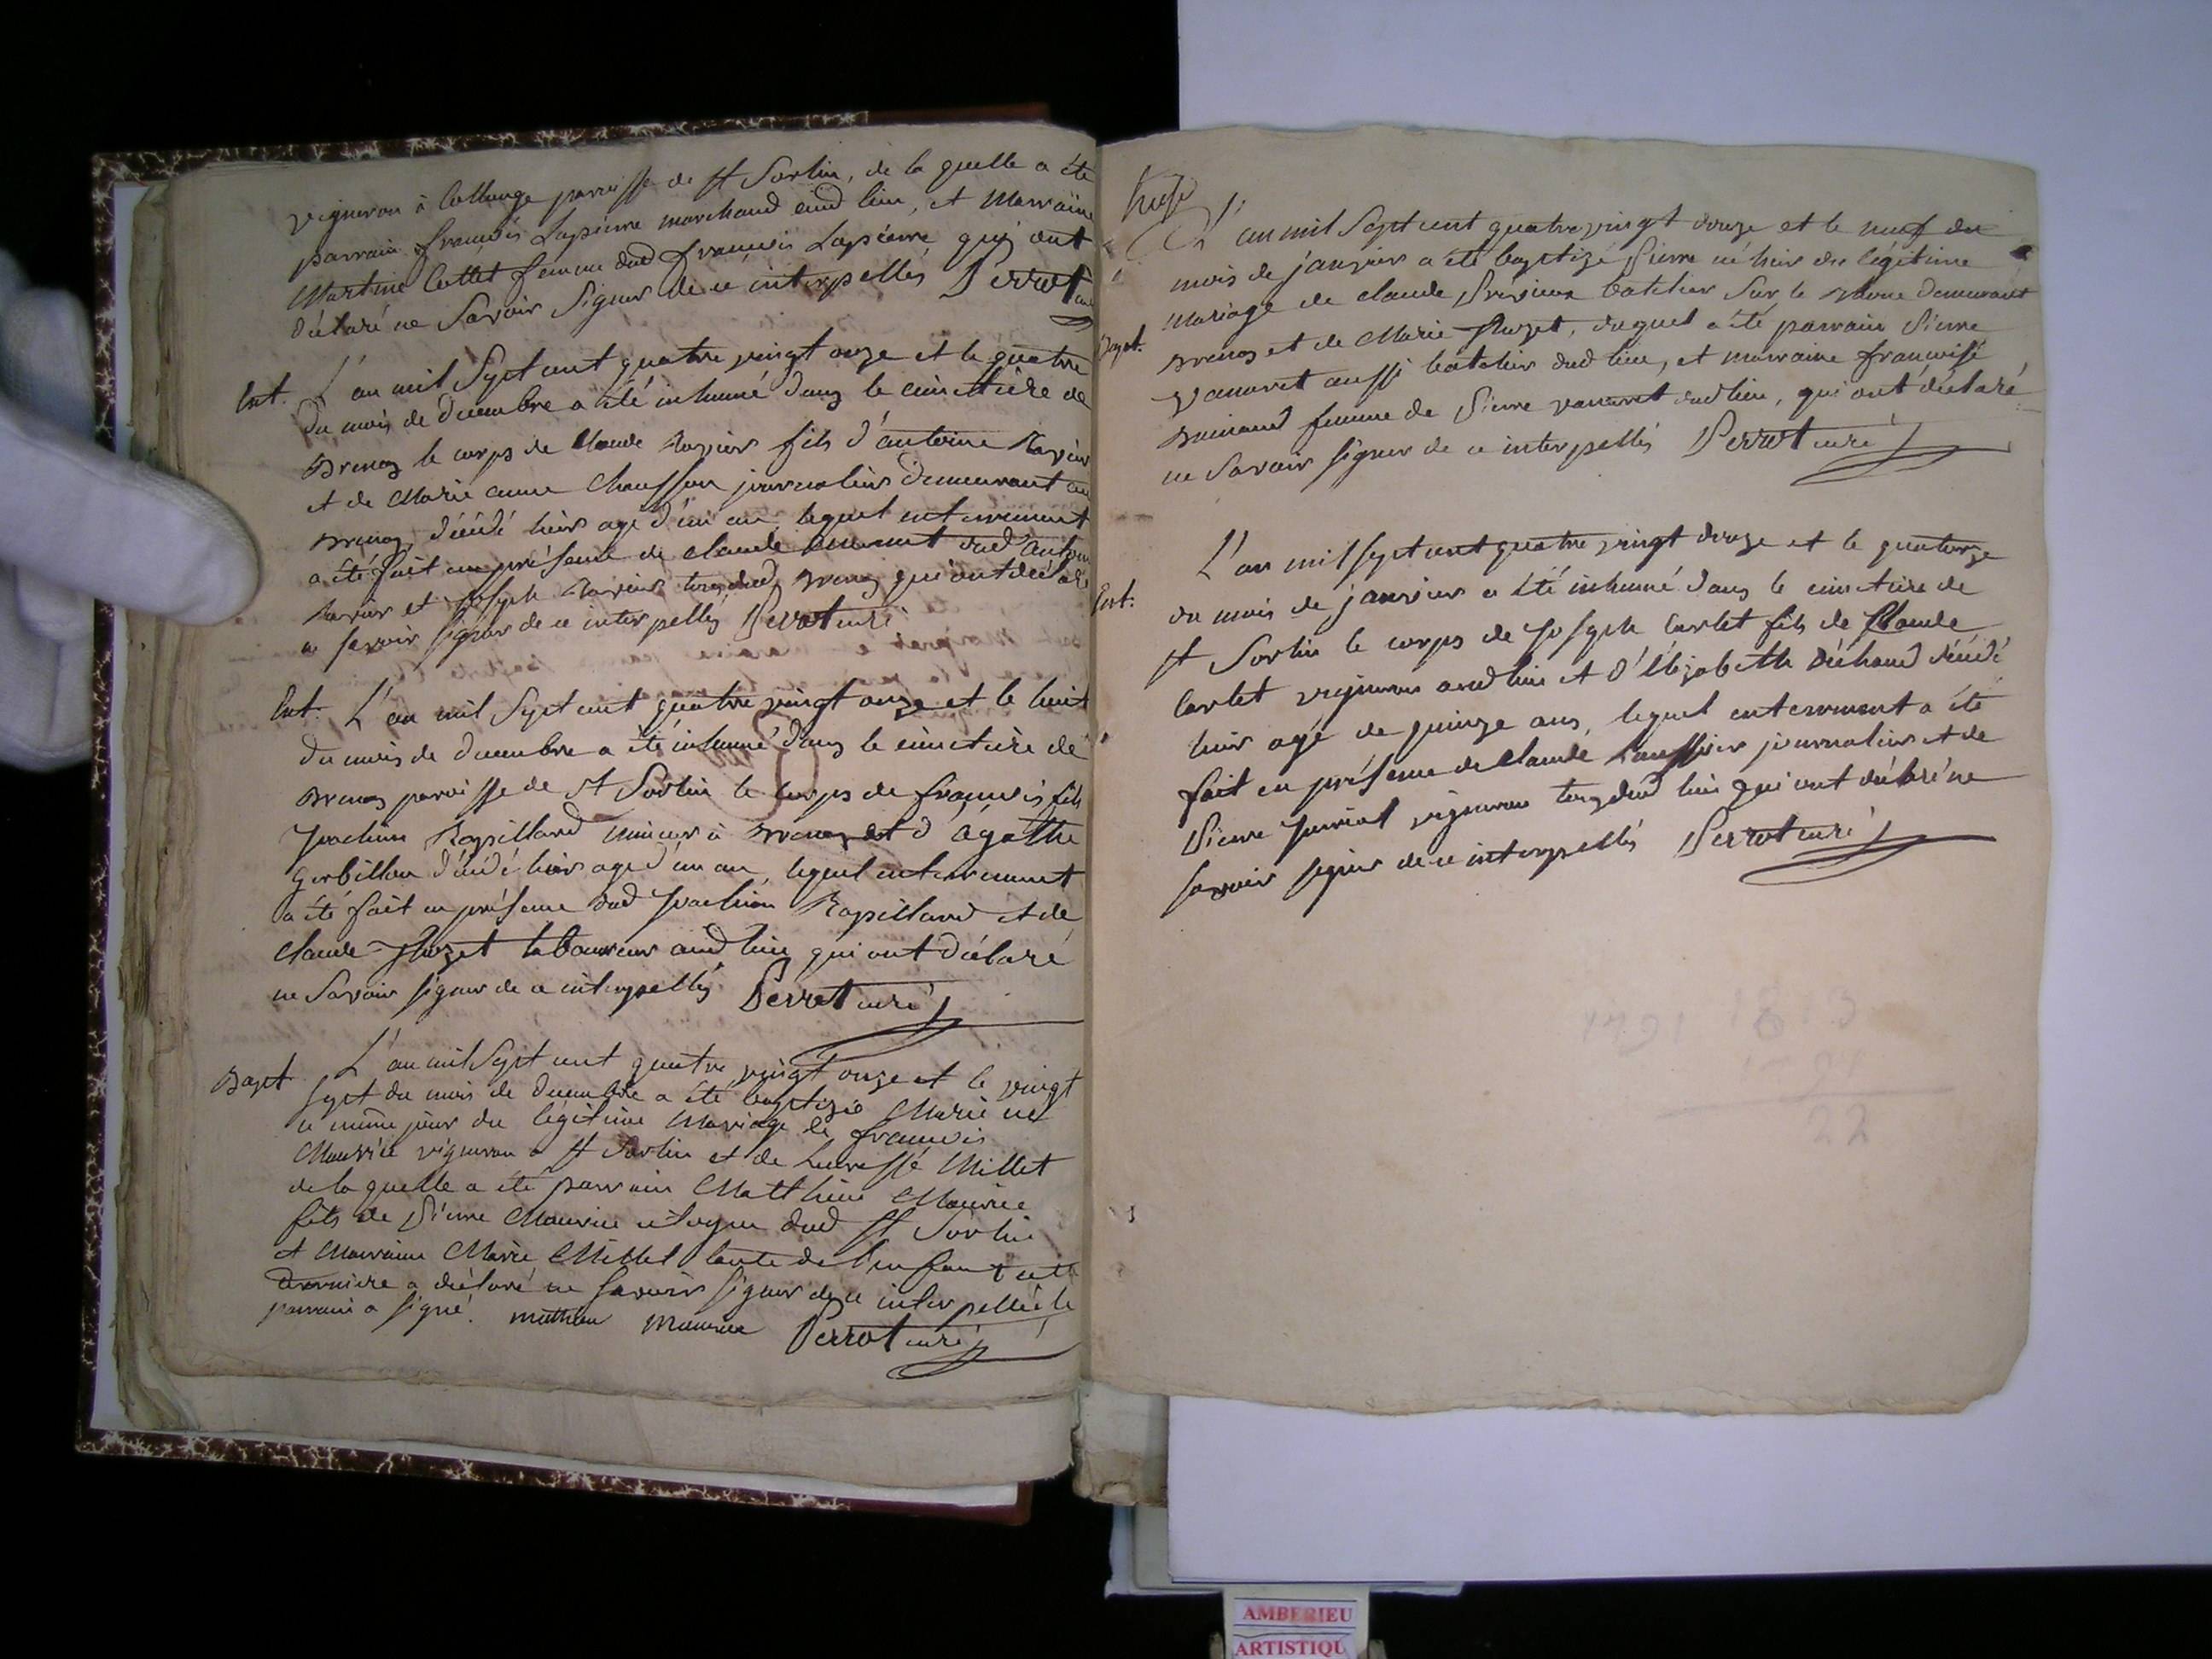 vigneron à Collonge parroisse de St Sorlin, de la quelle a été
parrain françois Lapierre marchand aud lieu, et Marraine
Martine Collet femme dud françois Lapierre qui ont
déclaré ne Savoir Signer de ce interpellés Perrot curé
Ent. L'an mil Sept cent quatre vingt onze et le quatre
du mois de decembre a été inhumé dans le cimetière de
le corps de Claude Ravier fils d'antoine Ravier
et de Marie anne Chausson journaliers demeurant au
décédé hier age d'un an, lequel enterrement
a été fait en présence de Claude dud antoine
Ravier et Joseph Ravier tous dud qui ont déclaré
ne savoir signer de ce interpellés Perrot curé
Ent. L'an mil Sept cent quatre vingt onze et le huit
du mois de decembre a été inhumé dans le cimetière de
paroisse de St Sorlin le corps de françois fils
Joachim Rapillard mineur à et d'Agathe
Gerbillon décédé hier age d'un an, lequel enterrement
a été fait en présence dud Joachim Rapillard et de
Claude laboureur aud lieu qui ont déclaré
ne Savoir signer de ce interpellés Perrot curé
Bapt L'an mil Sept cent quatre vingt onze et le vingt
sept du mois de decembre a été baptizée Marie née
le même jour du légitime Mariage de françois
Maurice vigneron à St Sorlin et de Lucresse Millet
de la quelle a été parrain Matthieu Maurice
fils de Pierre Maurice citoyen dud St Sorlin
et Marraine Marie Millet tante de l'enfant cette
derniere a déclaré ne savoir signer de ce interpellée le
parrain a signé. mathieu maurice Perrot curé
L'an mil Sept cent quatre vingt douze et le neuf du
mois de janvier a été baptizé Pierre né hier du légitime
mariage de claude batelier Sur le Rhone demeurant
Bapt. et de Marie duquel a été parrain Pierre
Vanaret aussi batelier dud lieu, et marraine françoise
femme de Pierre vanaret dud lieu, qui ont déclaré
ne Savoir signer de ce interpellés Perrot curé
L'an mil sept cent quatre vingt douze et le quatorze
Ent. du mois de janvier a été inhumé dans le cimetière de
St Sorlin le corps de Joseph Carlet fils de Claude
Carlet vigneron aud lieu et d'Elizabeth décédé
hier agé de quinze ans, lequel enterrement a été
fait en présence de Claude journalier et de
Pierre vigneron tous dud lieu qui ont déclaré ne
savoir signer de ce interpellés Perrot curé
1813
1791
22
AMBERIEU
ARTISTIQU